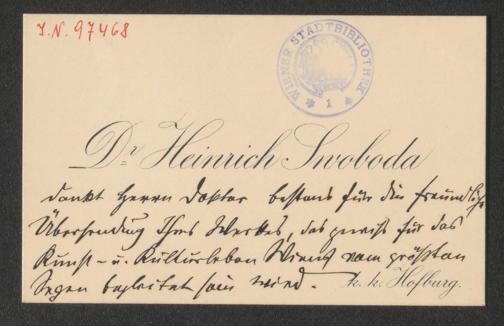 I.N. 97468
WIENER STADTBIBLIOTHEK
* 1 *
Dr. Heinrich Swoboda
dankt Herrn Doktor bestens für die freundliche
Übersendung Ihres Werkes, das gewiß für das
Kunst- u. Kulturleben Wiens vom größten
Segen begleitet sein wird.
k. k. Hofburg.